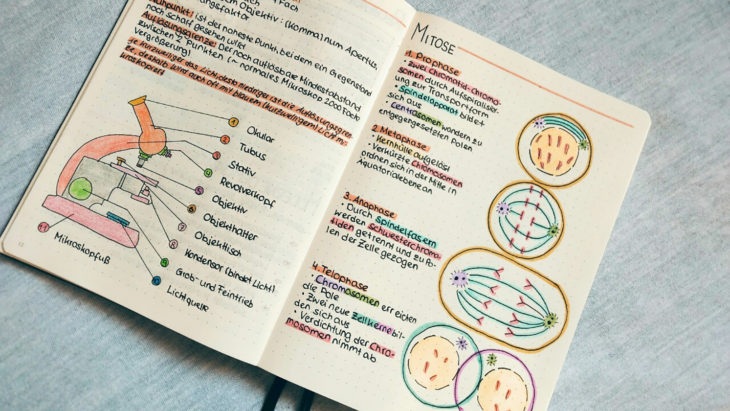 fach
ch Objektiv : (Komma) num Apertur,
ngsfaktor
punkt: ist der naheste Punkt bei dem ein Gegenstand
noch scharf gesehen wird
Auflösungsgrenze: Der noch auflösbare Mindestabstand
zwischen 2 Punkten (~ normales Mikroskop 2000 Fache
Vergrößerung)
Je kurzwelliger das Licht, desto niedriger ist die Auflösungsgren-
ze, deshalb wird auch oft mit blauem (kurzwelligem) Licht
Okular
Tubus
Stativ
Revolverkopf
Objektiv
Objekthalter
Objekttisch
Kondensor (bündelt Licht)
Grob- und Feintrieb
Lichtquelle
Mikroskopfuß
MITOSE
1. Prophase
• zwei Chromatid-Chromo-
somen durch Aufspiralisier-
ung zur Transportform
• Spindelapparat bildet
sich aus
• Centrosomen wandern zu
entgegengesetzten Polen
2. Metaphase
• Kernhülle aufgelöst
• Verkürzte Chromosomen
ordnen sich in der Mitte in
Äquatorialebene an
3. Anaphase
• Durch Spindelfasern
werden Schwesterchroma-
tiden getrennt und zu Po-
len der Zelle gezogen
4. Telophase
• Chromosomen erreichen
die Pole
• Zwei neue Zellkerne bil-
den sich aus
• Verdichtung der Chro-
mosomen nimmt ab